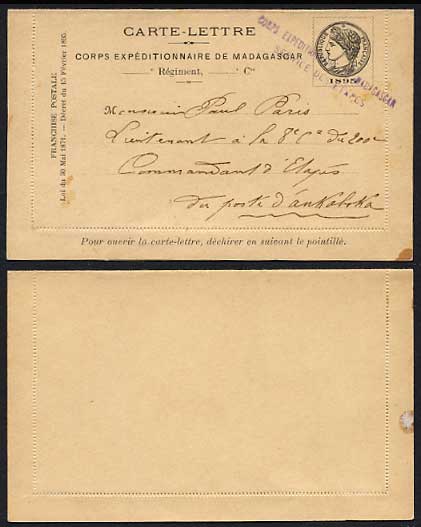 CARTE-LETTRE
CORPS EXPÉDITIONNAIRE DE MADAGASCAR
° Régiment, Cie
FRANCHISE POSTALE
Loi du 30 Mai 1871. — Décret du 15 Février 1895.
RÉPUBLIQUE FRANÇAISE
1895
CORPS EXPÉDIT MADAGASCAR
SERVICE DES ÉTAPES
Monsieur Paul Paris
Lieutenant à la 8e Cie du 200e
Commandant d'Etapes
du poste d'Ankaboka
Pour ouvrir la carte-lettre, déchirer en suivant le pointillé.